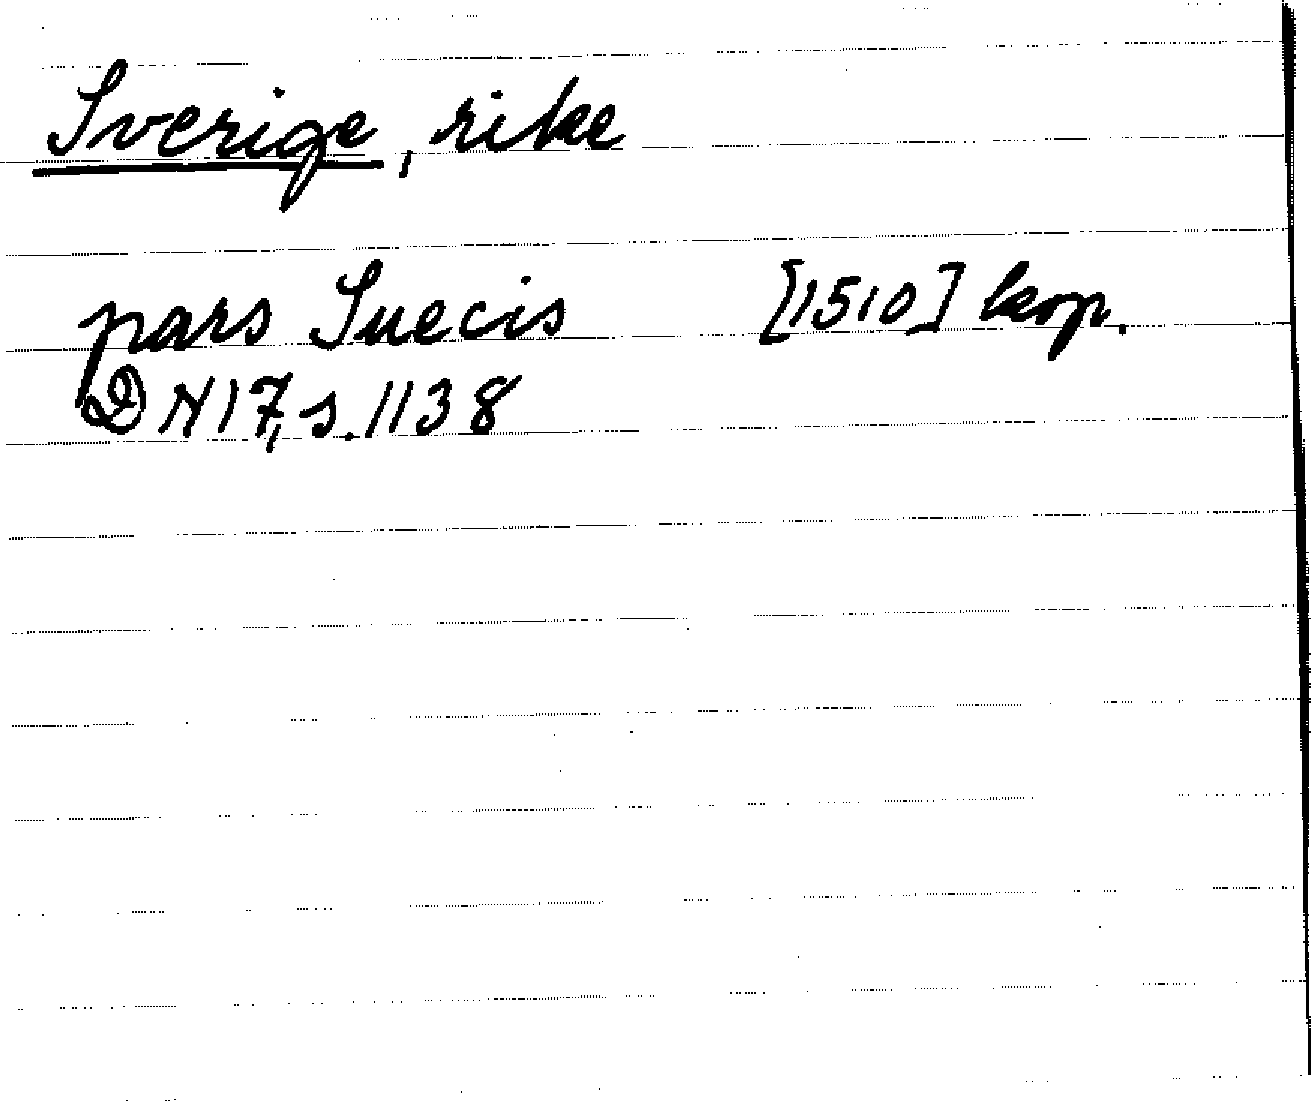 Sverige, rike
pars Suecis [1510] kop.
DN 17, s. 1138